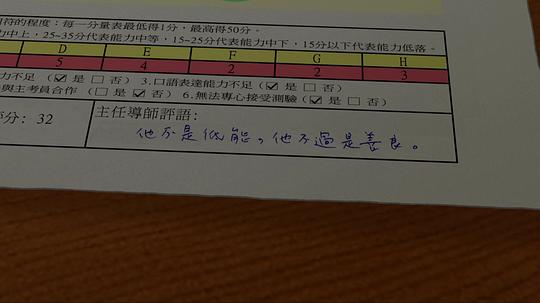 相符的程度：每一分量表最低得1分，最高得50分。
力中上，25~35分代表能力中等，15~25分代表能力中下，15分以下代表能力低落。
D E F G H
5 4 2 2 3
力不足（☑是□否） 3.口語表達能力不足（☑是□否）
與主考員合作（□是☑否） 6.無法專心接受測驗（☑是□否）
分: 32
主任導師評語:
他不是低能，他不過是善良。